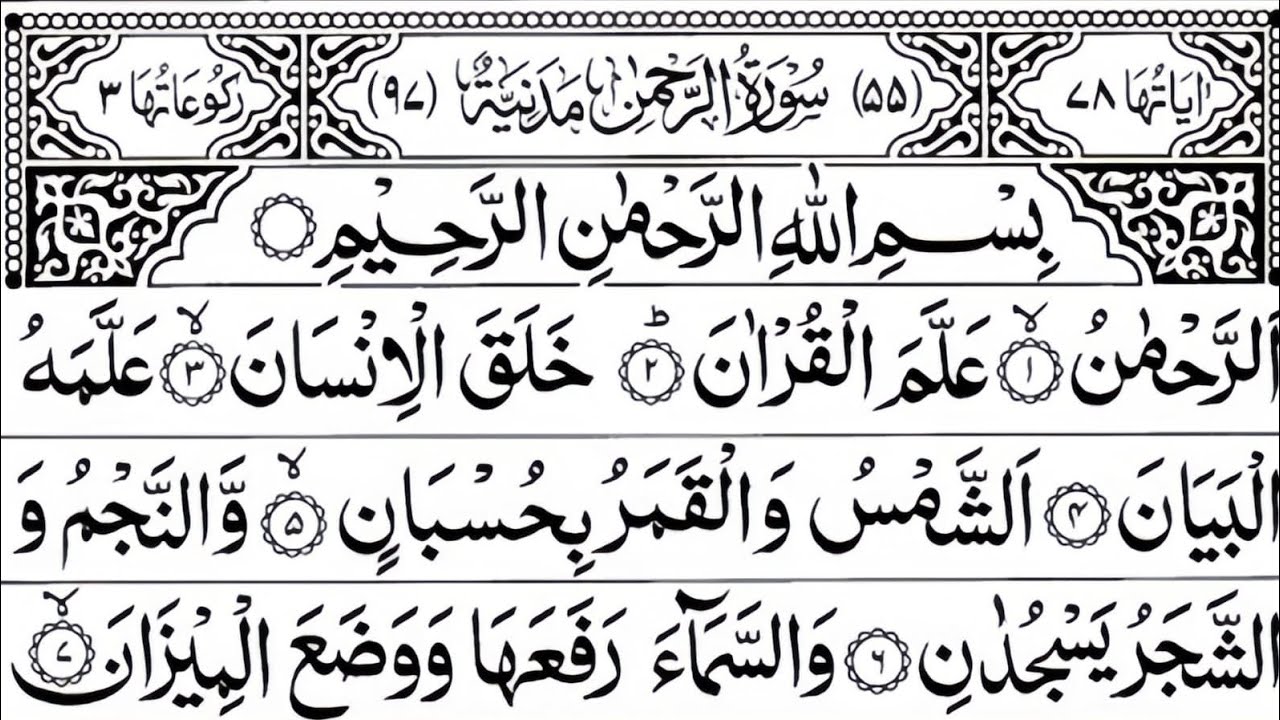 اٰیَاتُهَا ۷۸ (۵۵) سُوْرَةُ الرَّحْمٰنِ مَدَنِیَّةٌ (۹۷) رُكُوْعَاتُهَا ۳
بِسْمِ اللّٰهِ الرَّحْمٰنِ الرَّحِیْمِ
اَلرَّحْمٰنُ ۱ۙ عَلَّمَ الْقُرْاٰنَ ۲ؕ خَلَقَ الْاِنْسَانَ ۳ۙ عَلَّمَهُ
الْبَیَانَ ۴ اَلشَّمْسُ وَالْقَمَرُ بِحُسْبَانٍ ۵ۙ وَّالنَّجْمُ وَ
الشَّجَرُ یَسْجُدٰنِ ۶ وَالسَّمَآءَ رَفَعَهَا وَوَضَعَ الْمِیْزَانَ ۷ۙ